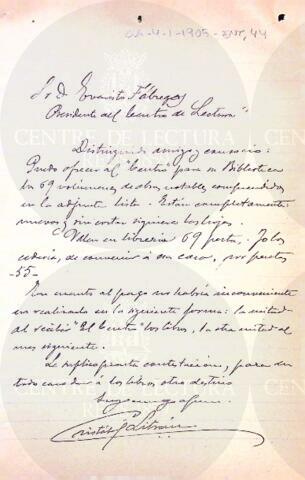 CL-4-1-1905-ENT, 44
Sr. D. Evaristo Fábregas
Presidente del "Centro de Lectura"
Distinguido amigo y consocio:
Puedo ofrecer al "Centro" para su Biblioteca
los 69 volúmenes de obras notables comprendidos
en la adjunta lista. Están completamente
nuevos, sin cortar siquiera las hojas.
Valen en librería 69 pesetas. Yo los
cedería, de convenir á esa casa, por pesetas
-55-
En cuanto al pago no habría inconveniente
en realizarlo en la siguiente forma: la mitad
al recibir "El Centro" los libros, la otra mitad al
mes siguiente.
Le suplico pronta contestación, para en
todo caso dar á los libros otro destino.
Suyo
Cristóbal Litrán
CENTRE DE LECTURA